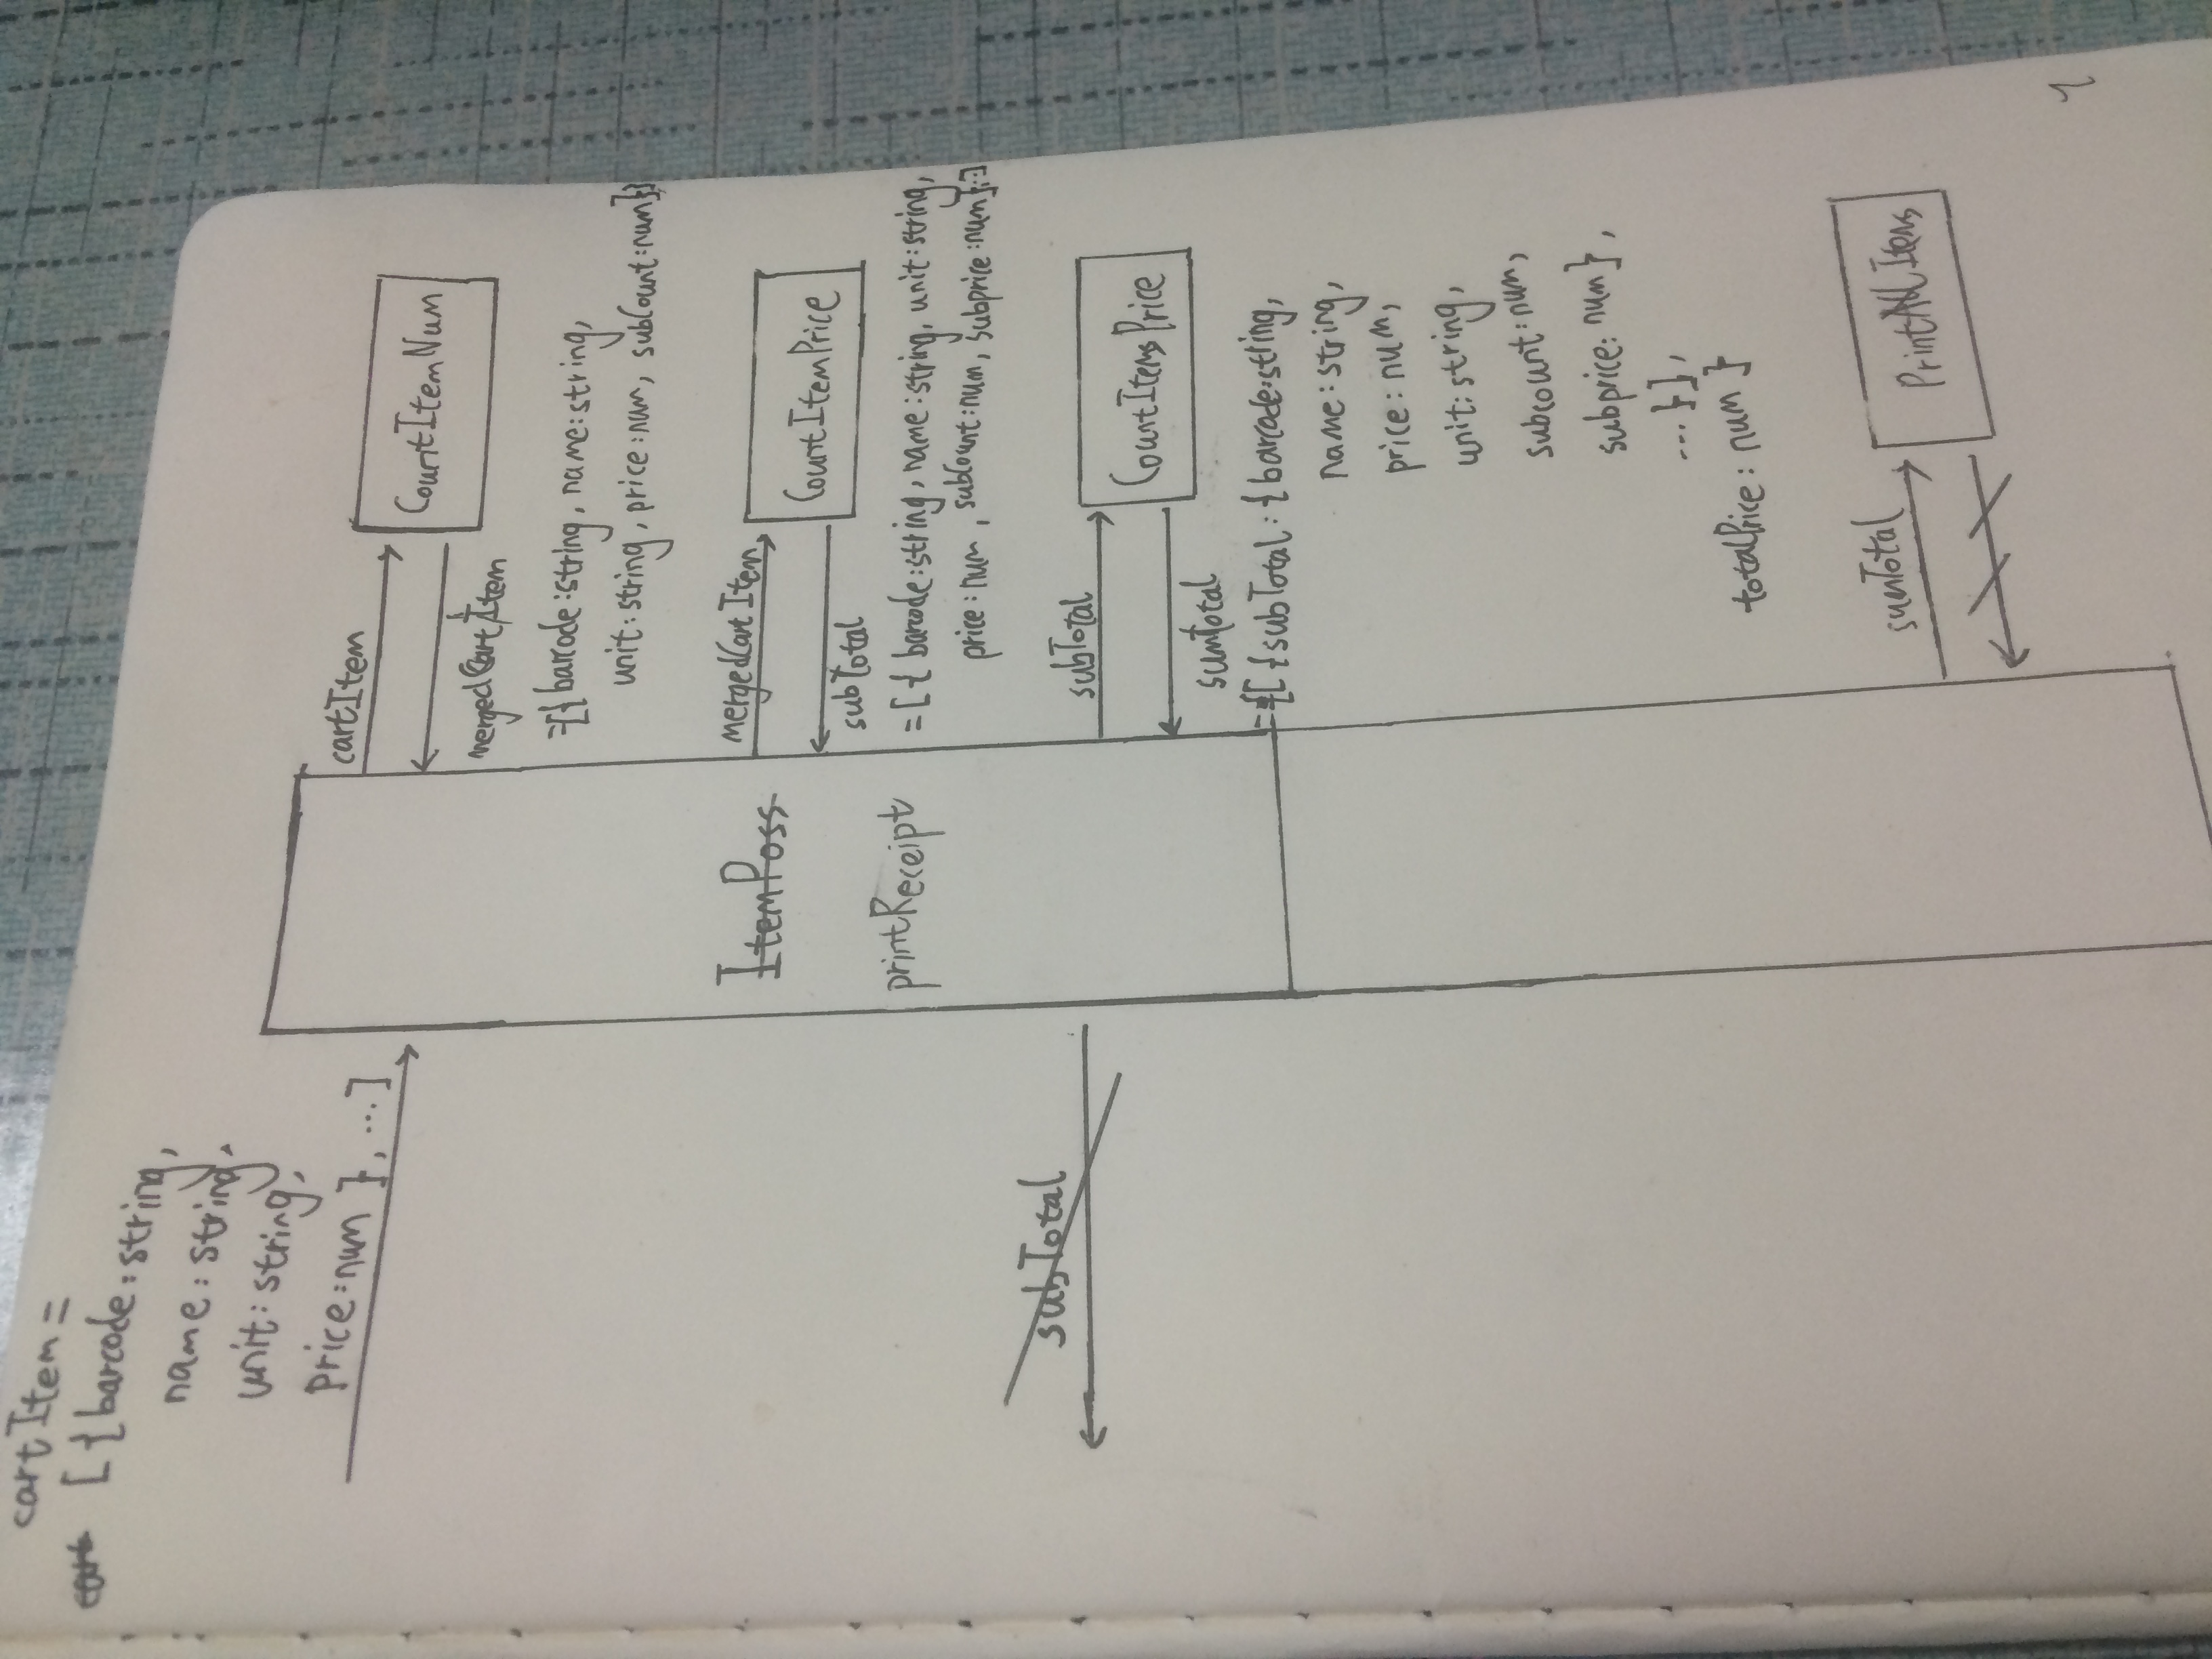 cartItem =
cart [{barcode:string,
name:string,
unit:string,
price:num }, ...]
cartItem
CountItemNum
mergedCartItem
=[{barcode:string, name:string,
unit:string, price:num, subCount:num}]
ItemPoss
printReceipt
mergedCartItem
CountItemPrice
subTotal
=[{ barcode:string, name:string, unit:string,
price:num, subCount:num, subprice:num}...]
subTotal
subTotal
CountItemsPrice
sumTotal
={[{subTotal:{barcode:string,
name:string,
price:num,
unit:string,
subcount:num,
subprice:num},
...}],
totalPrice:num }
sumTotal
PrintAllItems
1